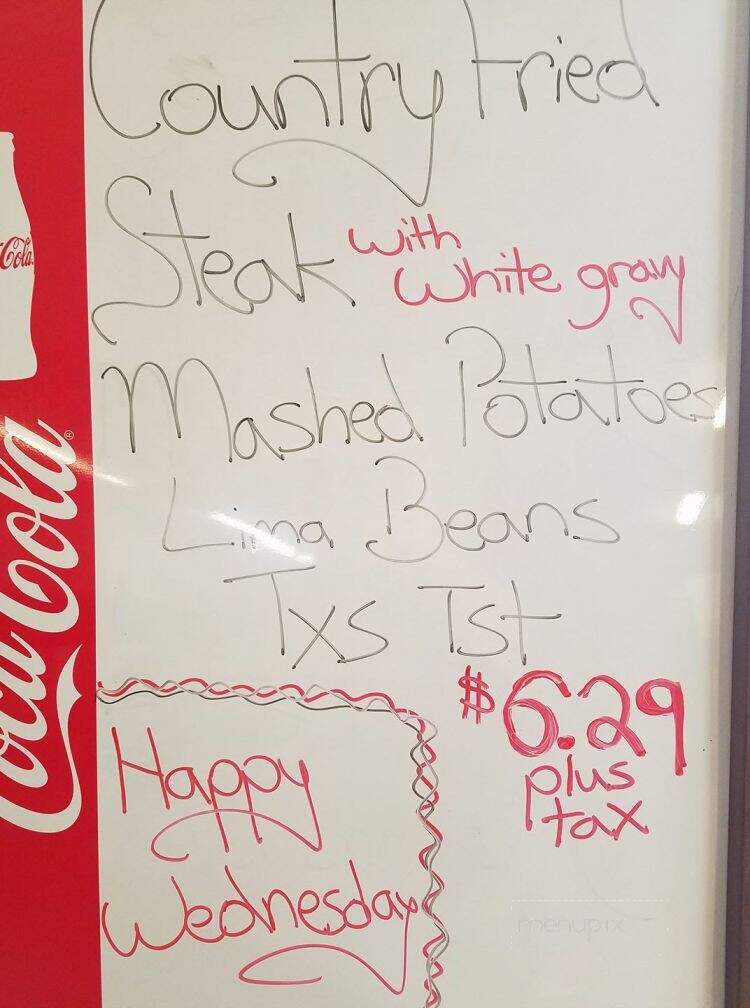 Country Fried
Steak with
White gravy
Mashed Potatoes
Lima Beans
Txs Tst
$6.29
plus
tax
Happy
Wednesday
Coca-Cola
Cola
menupix